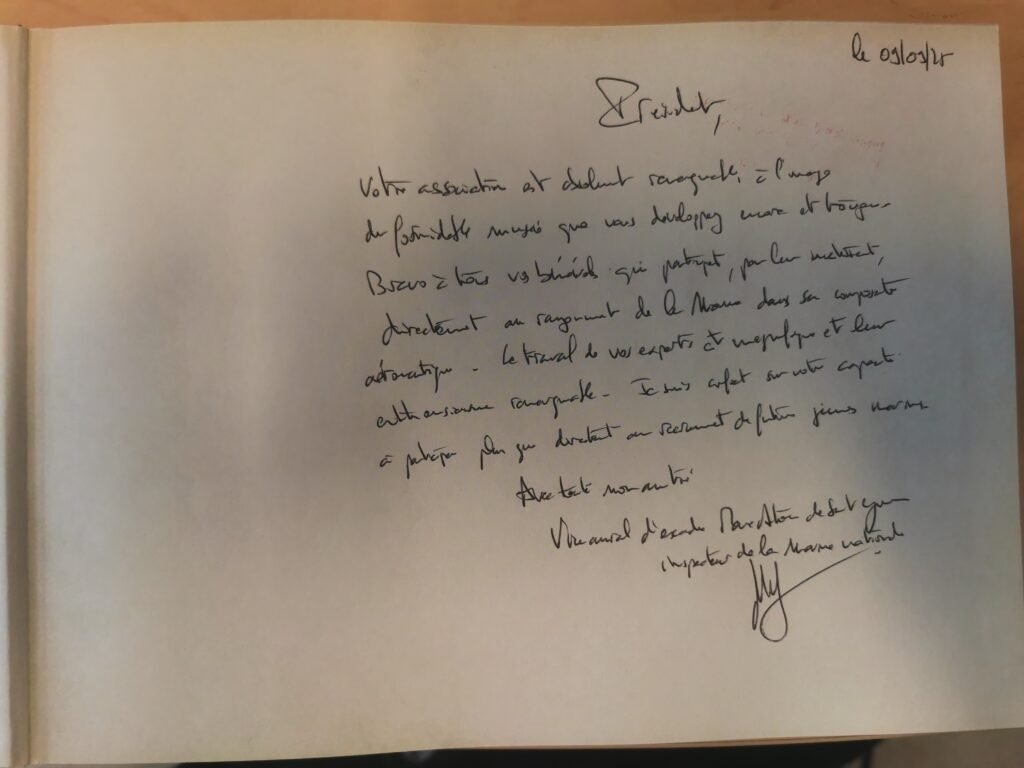 le 09/09/25
Président,
Votre association est absolument remarquable, à l'image
du formidable musée que vous développez encore et toujours.
Bravo à tous vos bénévoles qui participent, par leur
directement au rayonnement de la Marine dans sa composante
aéronautique. Le travail de vos experts est magnifique et leur
enthousiasme remarquable. Je suis sur votre capacité
à participer plus que directement au recrutement de futurs jeunes marins
Avec toute mon amitié
Vice amiral d'escadre de Saint
inspecteur de la Marine nationale